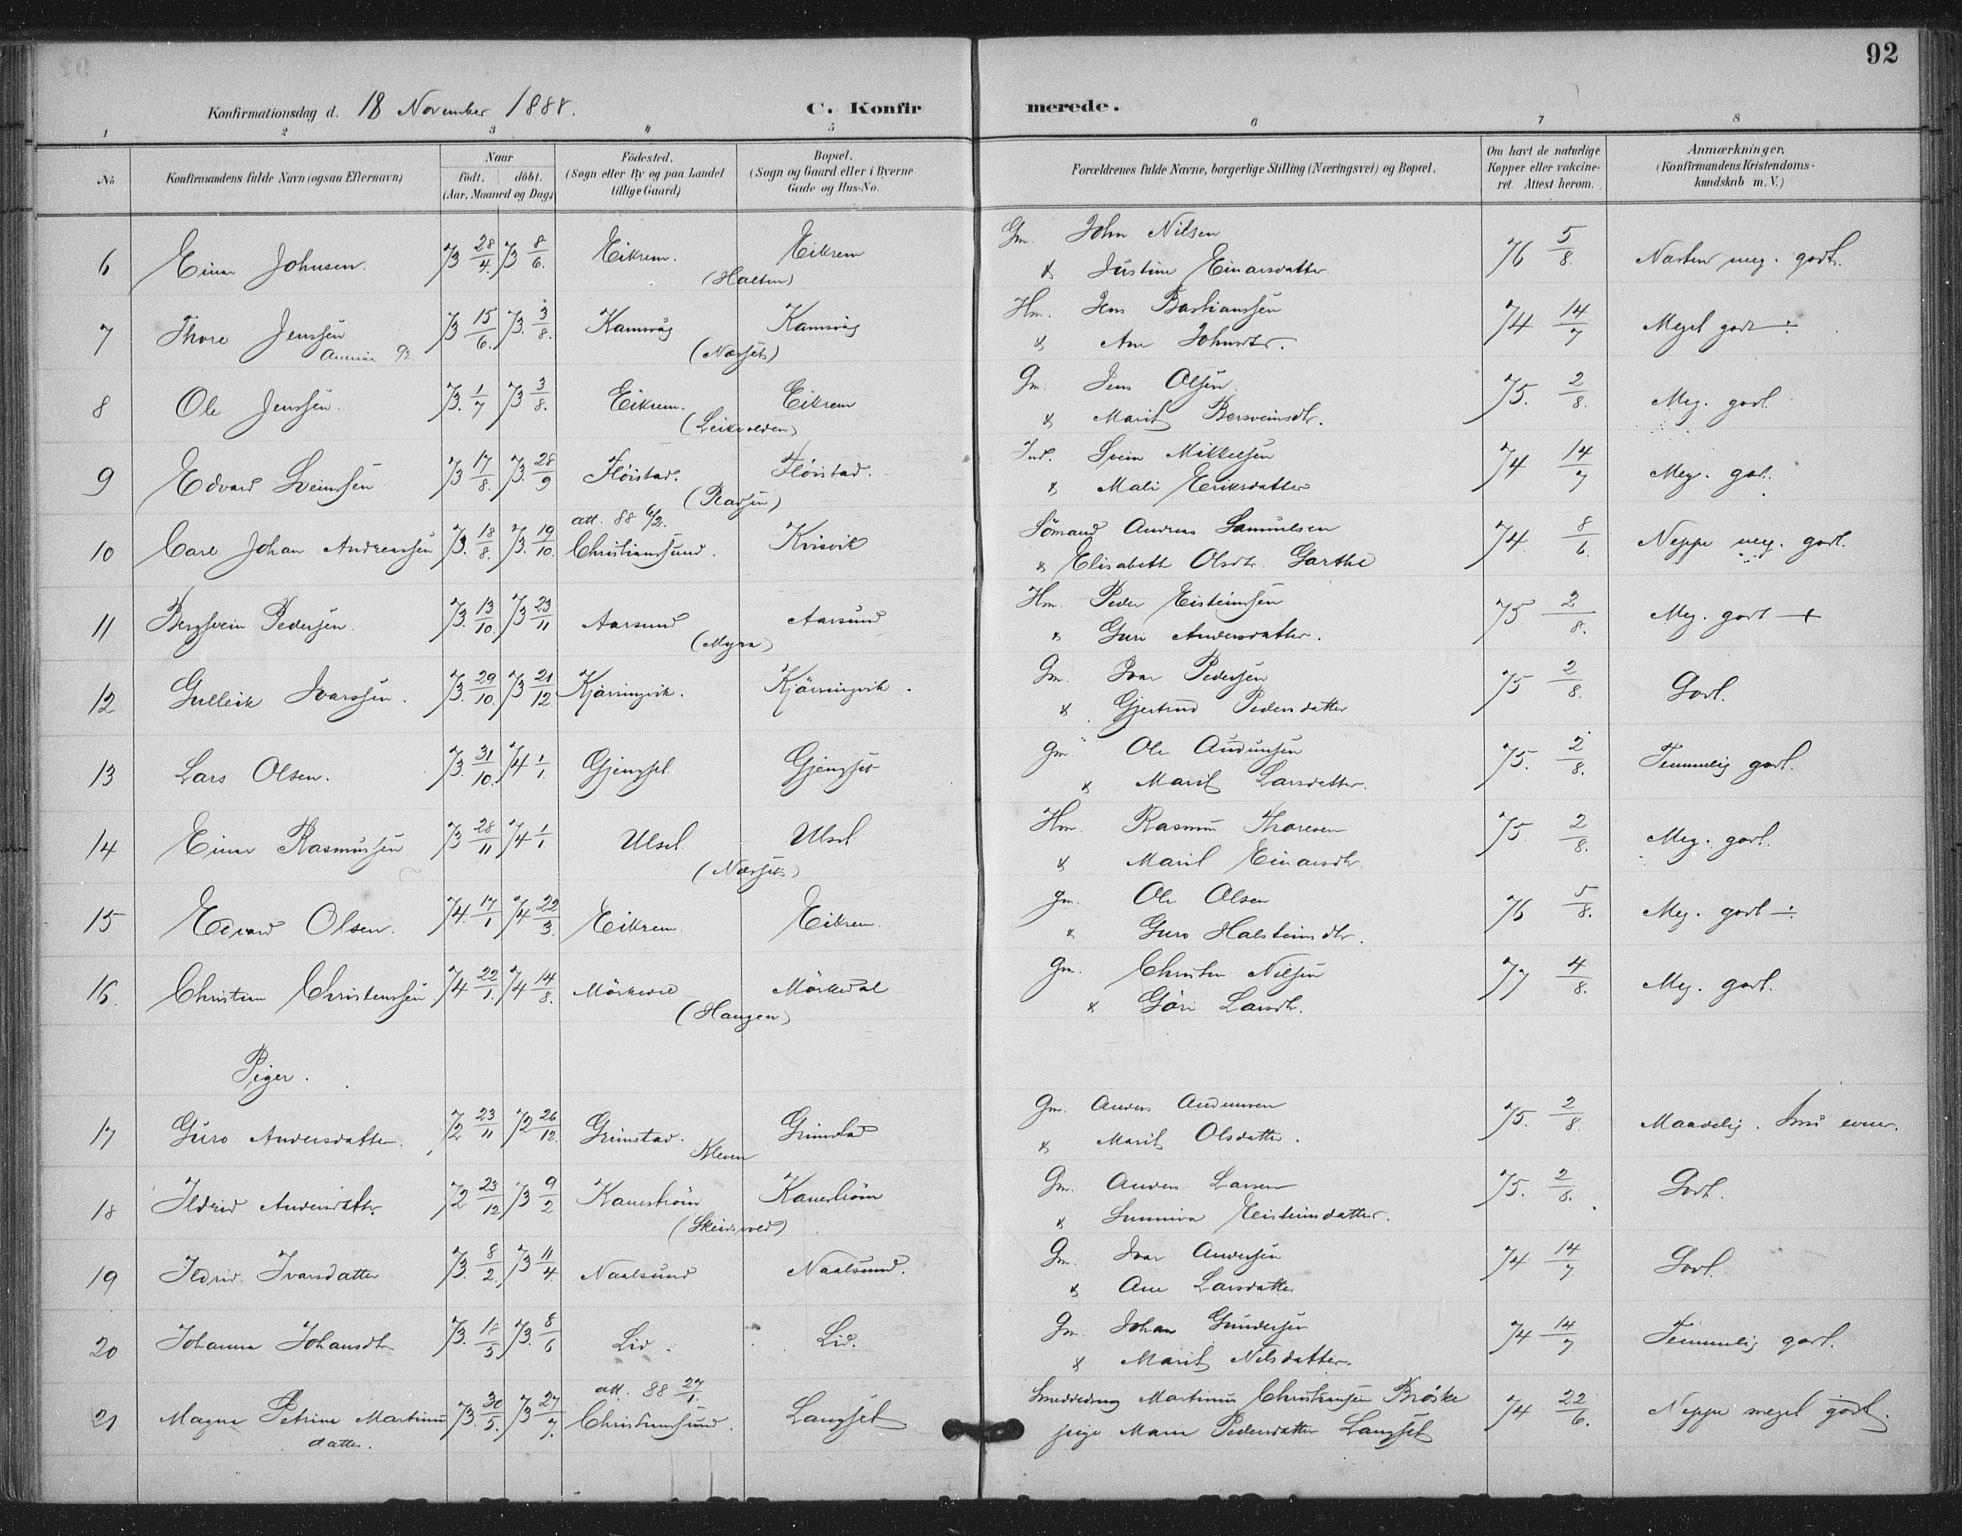 92
Konfirmationsdag d. 18 November 1888. C. Konfirmerede.
1 2 3 4 5 6 7 8
No
Konfirmandens fulde Navn (ogsaa Efternavn)
Naar
født. døbt.
(Aar, Maaned og Dag)
Fødested.
(Sogn eller By og paa Landet
tillige Gaard)
Bopæl.
(Sogn og Gaard eller i Byerne
Gade og Hus-No.
Forældrenes fulde Navne, borgerlige Stilling (Næringsvei) og Bopæl.
Om havt de naturlige
Kopper eller vakcine-
ret. Attest herom.
Anmærkninger,
(Konfirmandens Kristendoms-
kundskab m. V.)
6 Einar Johnsen. 73 28/4. 73 8/6. Eikrem. Eikrem Gm. John Nilsen 76 5/8. Næsten meg. godt.
(Halten) & Justine Einarsdatter.
7 Thore Jenssen 73 15/6. 73. 3/8. Kamsvåg Kamsvåg Hm. Jens Bastianssen 74 14/7 Meget godt ÷
(Næsset) & Ane Johnsdtr.
8 Ole Jenssen. 73. 1/7 73 3/8. Eikrem. Eikrem Gm. Jens Olsen 75. 2/8. Meg. godt.
& Marit Bersveinsdtr.
9 Edvard Sveinssen 73 17/8. 73. 28/9 Flöistad. Flöistad. Ind. Svein Mikkelsen 74 14/7 Meg. godt.
& Mali Eriksdatter
att. 88 6/2.
10 Carl Johan Andreassen 73. 18/8. 73. 19/10. Christianssund. Kvisvik Sömand Andreas Samuelsen 74. 8/6. Neppe meg. godt.
& Elisabeth Olsdtr. Garthe
11 Bergsvein Pedersen. 73. 13/10. 73 23/11 Aarsund Aarsund Hm. Peder Eisteinsen 75. 2/8. Meg. godt +
(Myra) & Guri Andersdatter.
12 Gulleik Ivarssen. 73. 29/10. 73 21/12 Kjörringvik. Kjörringvik. Gm. Ivar Pedersen 75 2/8. Godt.
& Gjertrud Pedersdatter
13 Lars Olsen. 73. 31/10. 74 1/1. Gjengset Gjengset Gm. Ole Audunsen 75. 2/8. Temmelig godt.
& Marit Larsdatter.
14 Einar Rasmussen 73 28/11 74 1/1. Ulset Ulset Hm. Rasmus Thoresen 75. 2/8. Meg. godt.
(Næsset) & Marit Einarsdtr.
15 Edvard Olsen. 74. 17/1 74 22/3. Eikrem. Eikrem. Gm. Ole Olsen 76 5/8. Meg. godt ÷
& Guro Halsteinsdtr.
16. Christian Christenssen 74 22/1. 74 14/8. Mörkedal Mörkedal Gm. Christen Nilsen 77 4/8. Meg. godt.
(Haugen) & Göri Larsdtr.
Piger.
17 Guro Andersdatter. 72 23/11 72 26/12. Grimstad. Grimstad Gm. Anders Audunsen 75. 2/8. Maadelig. Små evner.
Kleven & Marit Olsdatter.
18 Ildrid Andersdatter. 72 23/12 73 9/2 Kanestrøm Kanestrøm Gm. Anders Larsen 75. 2/8. Godt.
& Sunniva Eisteinsdatter.
19 Ildrid Ivarsdatter 73. 8/2. 73 11/4. Naalsund Naalsund. Gm. Ivar Andersen 74 14/7 Godt.
& Ane Larsdatter
20 Johanna Johansdtr 73. 18/5 73. 8/6 Lid. Lid. Gm. Johan Gundersen 74 14/7 Temmelig godt.
& Marit Nilsdatter.
att. 88 27/1.
21 Magna Petrine Martinus 73. 30/5. 73 27/7. Christianssund. Langset Smeddreng Martinus Christiansen Bröske 74 22/6. Neppe meget godt.
datter. pige Maren Pedersdatter Langset